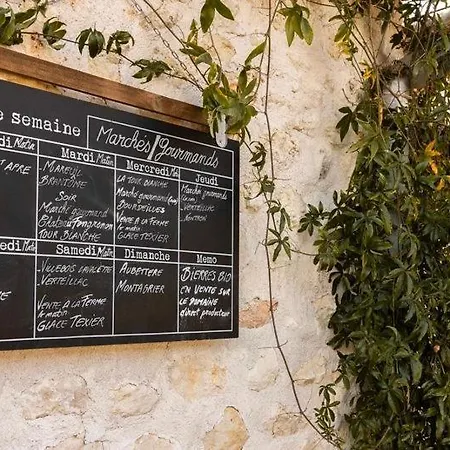 e semaine
Marchés Gourmands
di Matin
Mardi Matin
Mercredi Matin
Jeudi
APRE
Mareuil
Brantôme
Soir
Marché gourmand
TOUR BLANCHE
LA TOUR BLANCHE
Marché gourmand
BOURDEILLES
VENTE A LA FERME
le matin
GLACE TEXIER
Marché gourmand
VERTEILLAC
NONTRON
edi Matin
Samedi Matin
Dimanche
Memo
VILLEBOIS LAVALETTE
VERTEILLAC
VENTE A LA FERME
le matin
GLACE TEXIER
AUBETERRE
MONTAGRIER
BIERRES BIO
EN VENTE SUR
LE DOMAINE
direct producteur